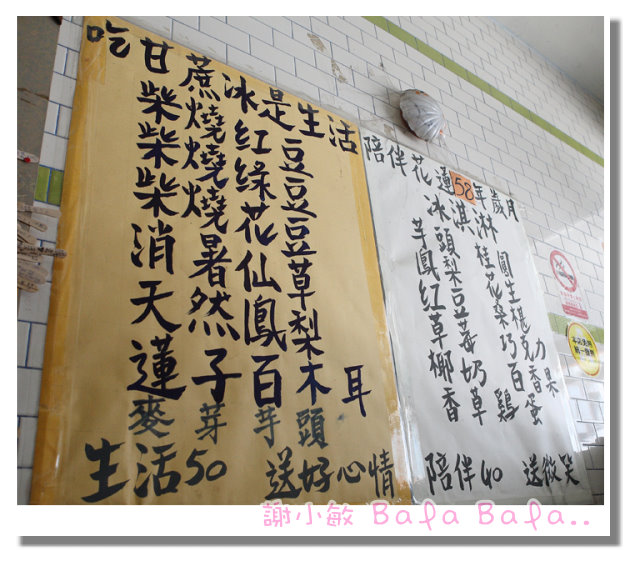 吃甘蔗冰是生活
柴燒紅豆
柴燒綠豆
柴燒花豆
消暑仙草
天然鳳梨
蓮子百木耳
麥芽芋頭
生活50 送好心情
陪伴花蓮58年歲月
冰淇淋
芋頭 桂圓
鳳梨 花生
紅豆 桑椹
草莓 巧克力
椰奶 百香果
香草 雞蛋
陪伴40 送微笑
謝小敏 Bafa Bafa..